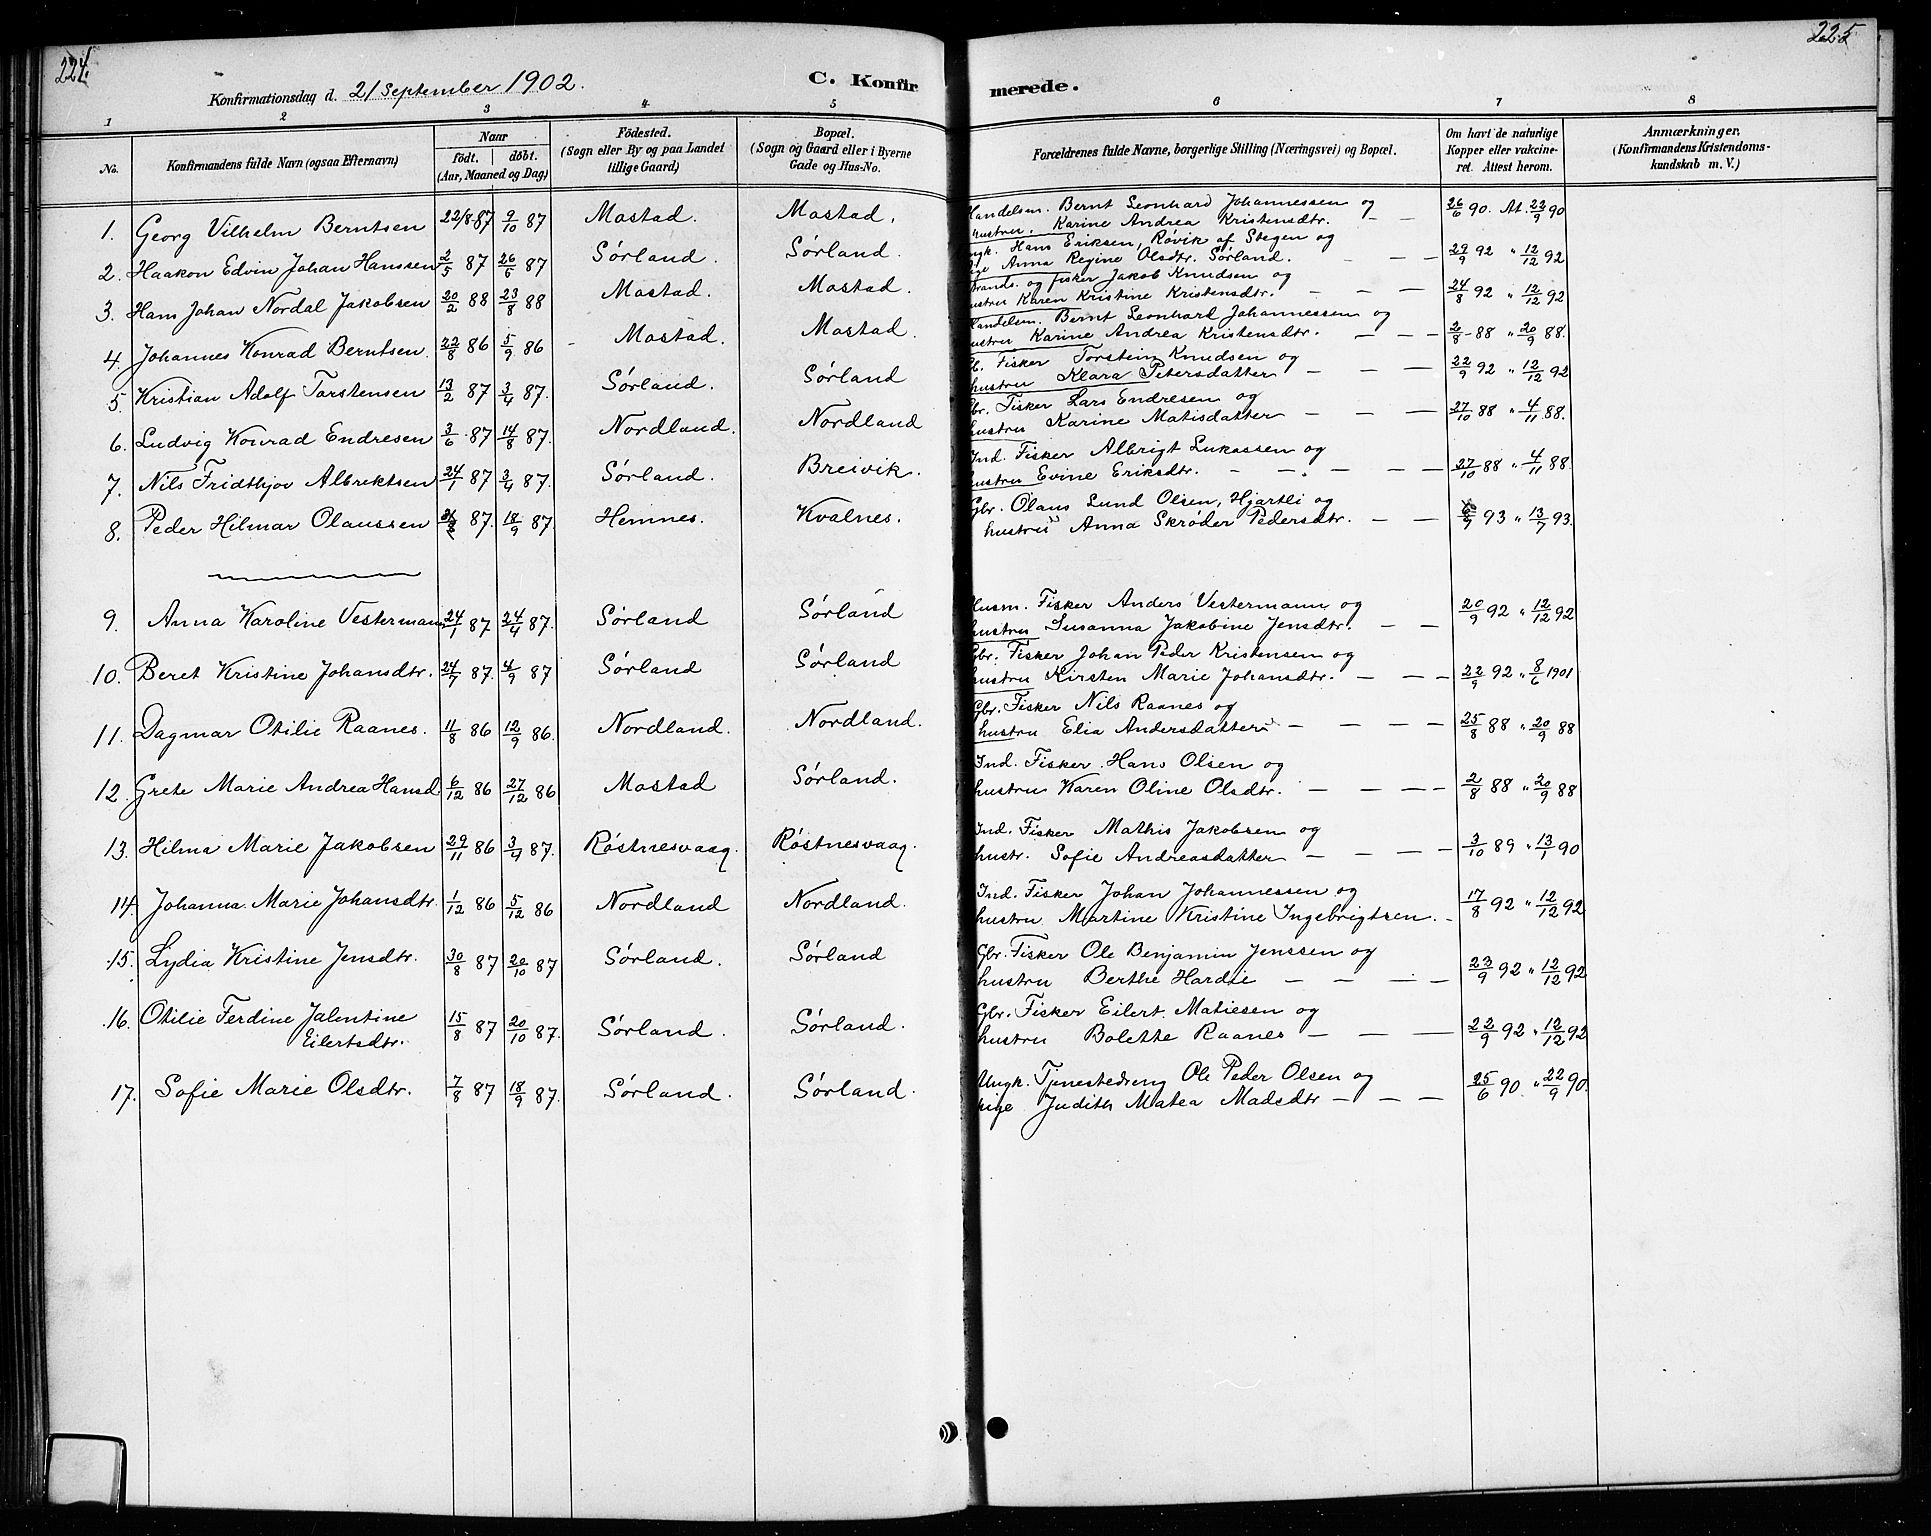 224.
225
Konfirmationsdag d. 21 September 1902.
C. Konfirmerede.
1 2 3 4 5 6 7 8
No.
Konfirmandens fulde Navn (ogsaa Efternavn)
Naar
födt. döbt.
(Aar, Maaned og Dag)
Födested.
(Sogn eller By og paa Landet
tillige Gaard)
Bopæl.
(Sogn og Gaard eller i Byerne
Gade og Hus-No.
Forældrenes fulde Navne, borgerlige Stilling (Næringsvei) og Bopæl.
Om havt de naturlige
Kopper eller vakcine-
ret. Attest herom.
Anmærkninger.
(Konfirmandens Kristendoms-
kundskab m. V.)
1. Georg Vilhelm Berntsen 22/8 87 9/10 87 Mostad. Mostad. Handelsm. Bernt Leonhard Johannessen og
hustru Karine Andrea Kristensdtr. — — 26/6 90. At. 22/9 90
2. Haakon Edvin Johan Hanssen 2/5 87 26/5 87 Sørland. Sørland. Ungk. Hans Eriksen, Røvik af Stegen og
pige Anna Regine Olsdtr. Sørland. — — 29/9 92 " 12/12 92
3. Hans Johan Nordal Jakobsen 20/2 88 23/8 88 Mostad. Mostad. Strands. og fisker Jakob Knudsen og
hustru Karen Kristine Kristensdtr. — — — 24/8 92 " 12/12 92
4. Johannes Konrad Berntsen 22/8 86 5/9 86 Mostad. Mostad. Handelsm. Bernt Leonhard Johannessen og
hustru Karine Andrea Kristensdtr. — — 2/8 88 " 20/9 88.
5. Kristian Adolf Torstensen 13/2 87 3/4 87. Sørland. Sørland Fisker Torstein Knudsen og
hustru Klara Petersdatter — — — 22/9 92 " 12/12 92
6. Ludvig Konrad Endresen 3/6 87 14/8 87. Nordland. Nordland Gbr. Fisker Lars Endresen og
hustru Karine Matisdatter — — — 27/10 88 " 4/11 88.
7. Nils Fridthjov Albrektsen 24/1 87 3/4 87. Sørland. Breivik. Ind. Fisker Albrigt Lukassen og
hustru Evine Eriksdtr. — — — — 27/10 88 " 4/11 88.
8. Peder Hilmar Olaussen 87. 18/9 87 Hemnes. Kvalnes. Gbr. Olaus Lund Olsen, Hjartli og
hustru Anna Skrøder Pedersdtr. — — 93 " 13/7 93.
9. Anna Karoline Vestermann 24/1 87 24/4 87. Sørland Sørland Husm. Fisker Anders Vestermann og
hustru Susanna Jakobine Jensdtr. — — 20/9 92 " 12/12 92
10. Beret Kristine Johansdtr. 24/7 87. 4/9 87 Sørland Sørland Gbr. Fisker Johan Peder Kristensen og
hustru Kirsten Marie Johansdtr. — — — 22/9 92 " 8/6 1901
11. Dagmar Otilie Raanes. 11/8 86 12/9 86. Nordland. Nordland. Gbr. Fisker Nils Raanes og
hustru Elia Andersdatter — — — — 25/8 88 " 20/9 88
12. Grete Marie Andrea Hansd. 6/12 86 27/12 86 Mostad Sørland. Ind. Fisker Hans Olsen og
hustru Karen Oline Olsdtr. — — — — 2/8 88 " 20/9 88
13. Hilma Marie Jakobsen 29/11 86 3/4 87. Røstnesvaag. Røstnesvaag. Ind. Fisker Mathis Jakobsen og
hustr. Sofie Andreasdatter — — — — 3/10 89 " 13/1 90
14. Johanna Marie Johansdtr. 1/12 86 5/12 86 Nordland Nordland. Ind. Fisker Johan Johannessen og
hustru Martine Kristine Ingebrigtsen. — 17/8 92 " 12/12 92
15. Lydia Kristine Jensdtr. 30/8 87 20/10 87 Sørland. Sørland Gbr. Fisker Ole Benjamin Jenssen og
hustru Berthe Hardie — — — — 23/9 92 " 12/12 92
16. Otilie Ferdine Jalentine 15/8 87 20/10 87. Sørland. Sørland. Gbr. Fisker Eilert Matiesen og
Eilertsdtr. hustru Bolette Raanes — — — 22/9 92 " 12/12 92
17. Sofie Marie Olsdtr. 7/8 87 18/9 87. Sørland. Sørland. Ungk. Tjenestedreng Ole Peder Olsen og
pige Judith Matea Madsdtr — — — 25/6 90. " 22/9 90.